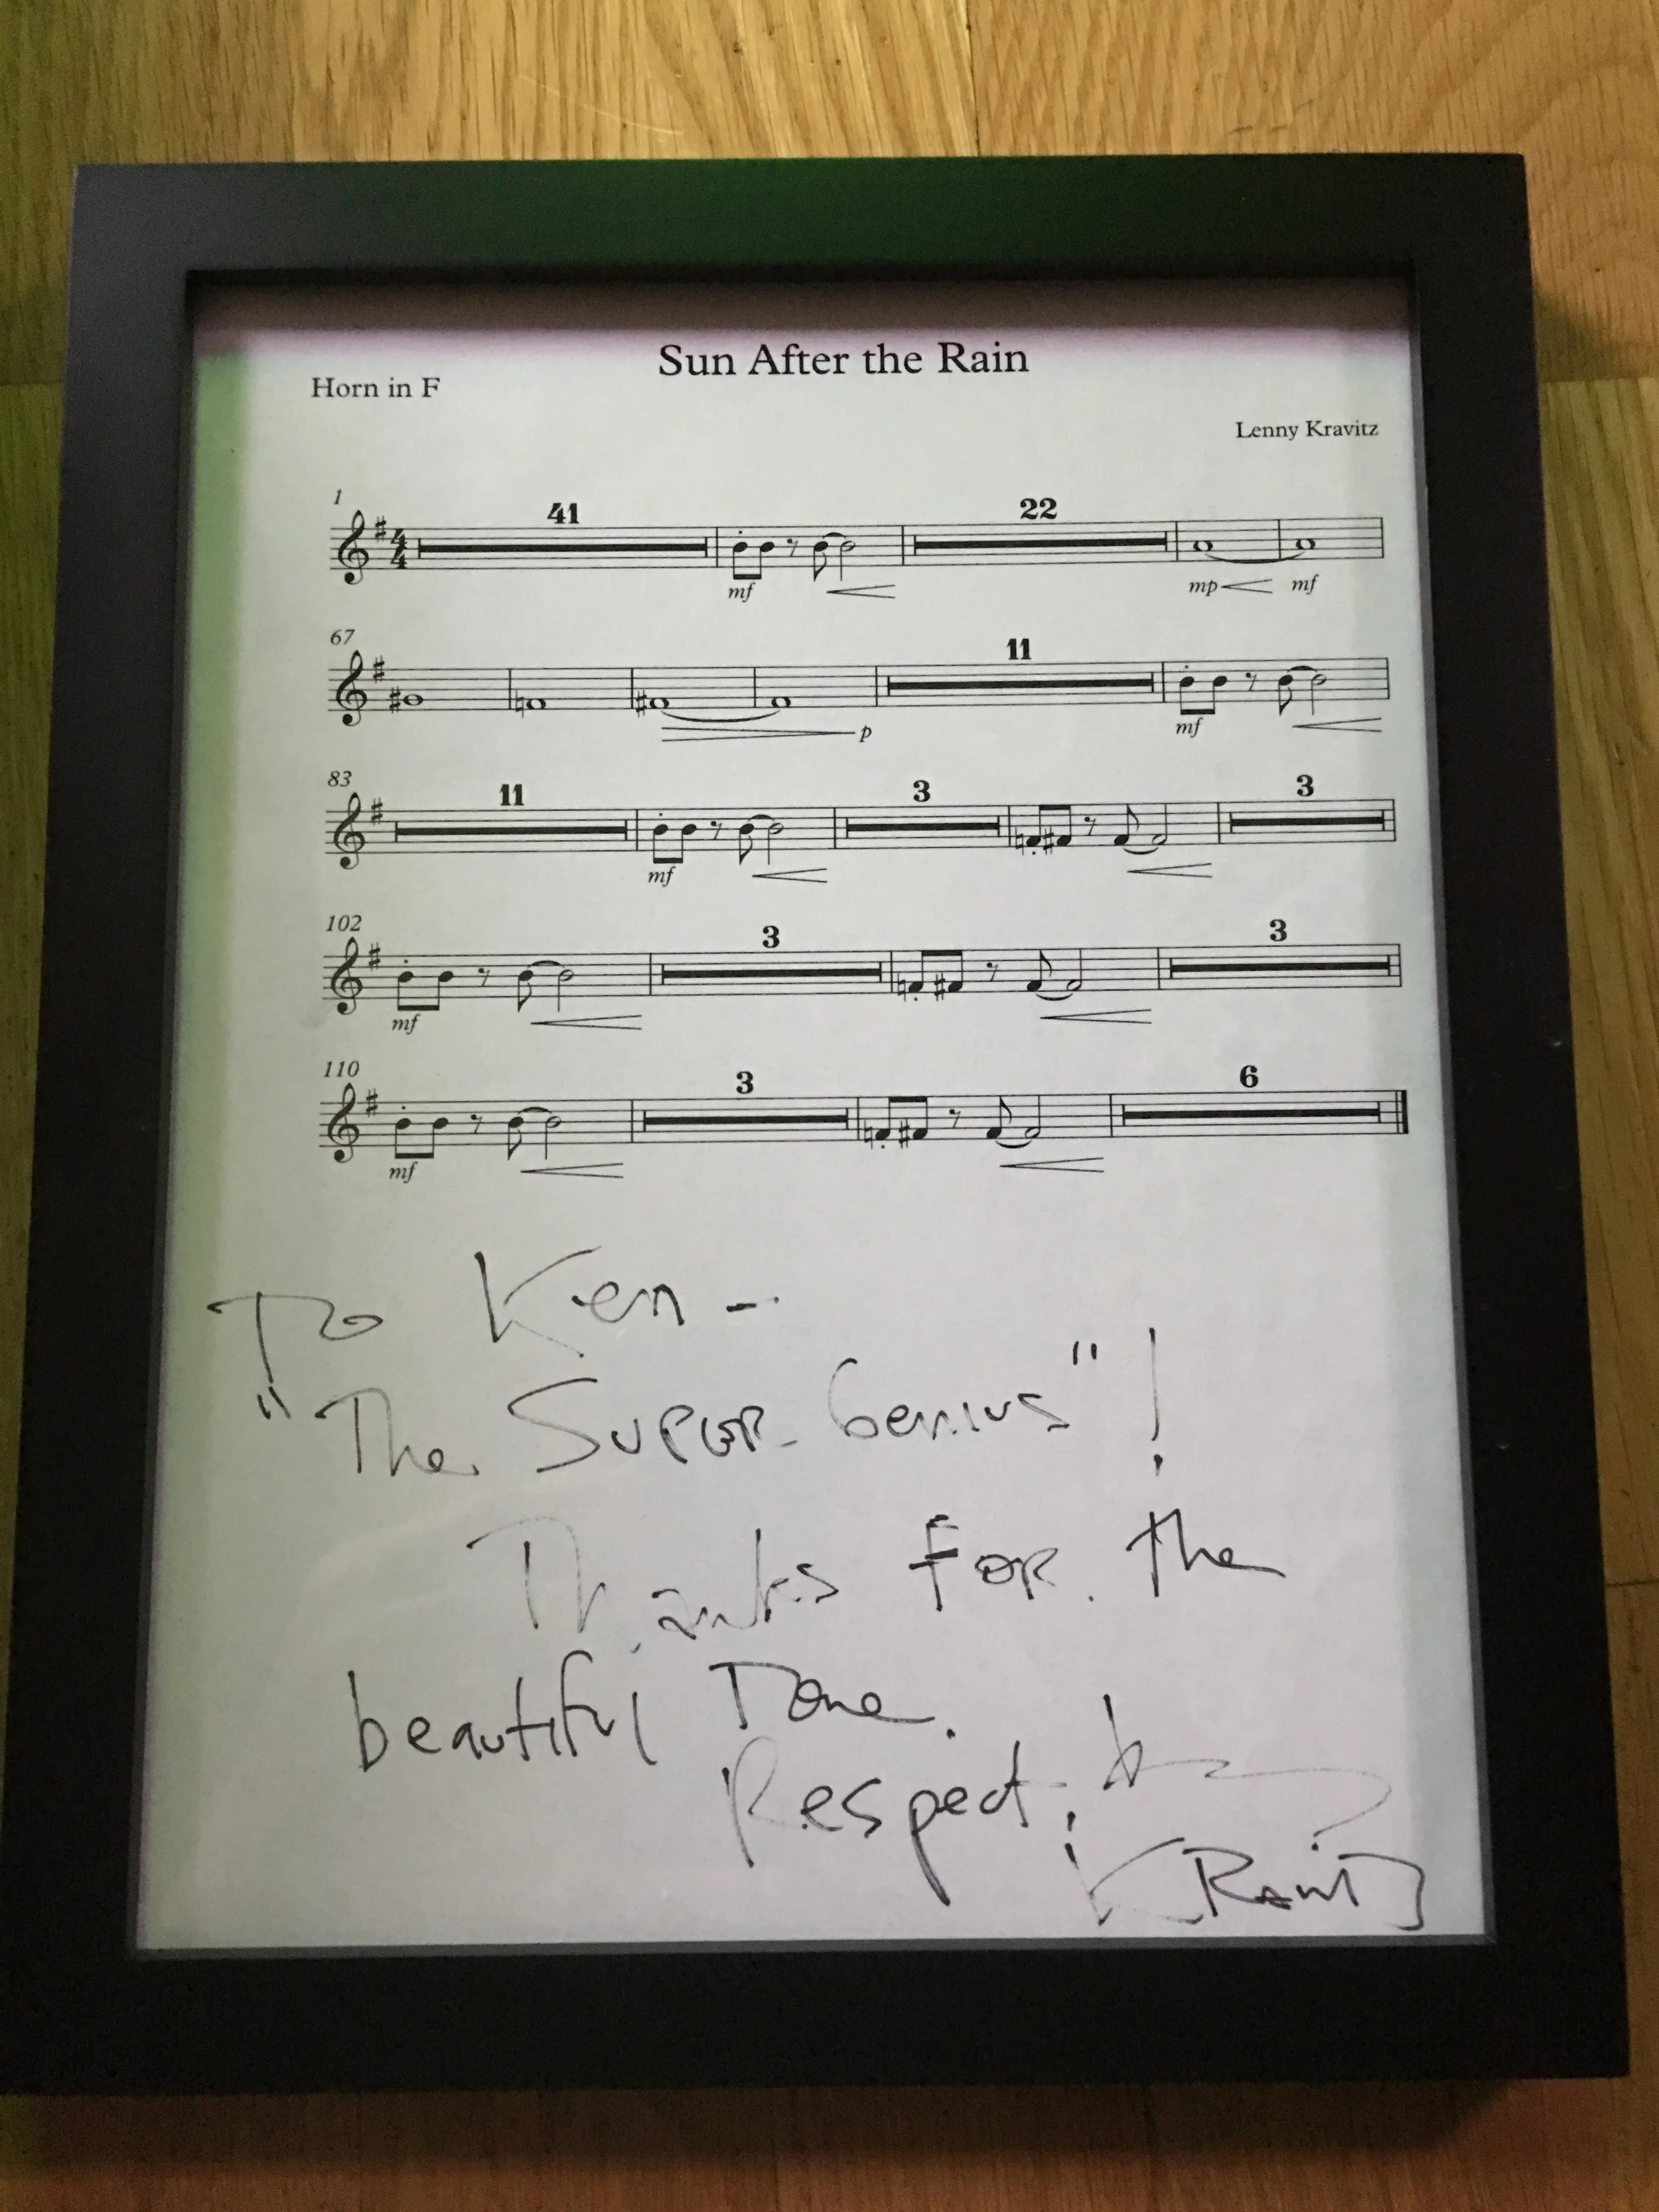 Sun After the Rain
Horn in F
Lenny Kravitz
1
41
22
mf
mp
mf
67
11
p
mf
83
11
3
3
mf
102
3
3
mf
110
3
6
mf
To Ken -
"The Super Genius"!
Thanks for the
beautiful Tone.
Respect,
Kravitz